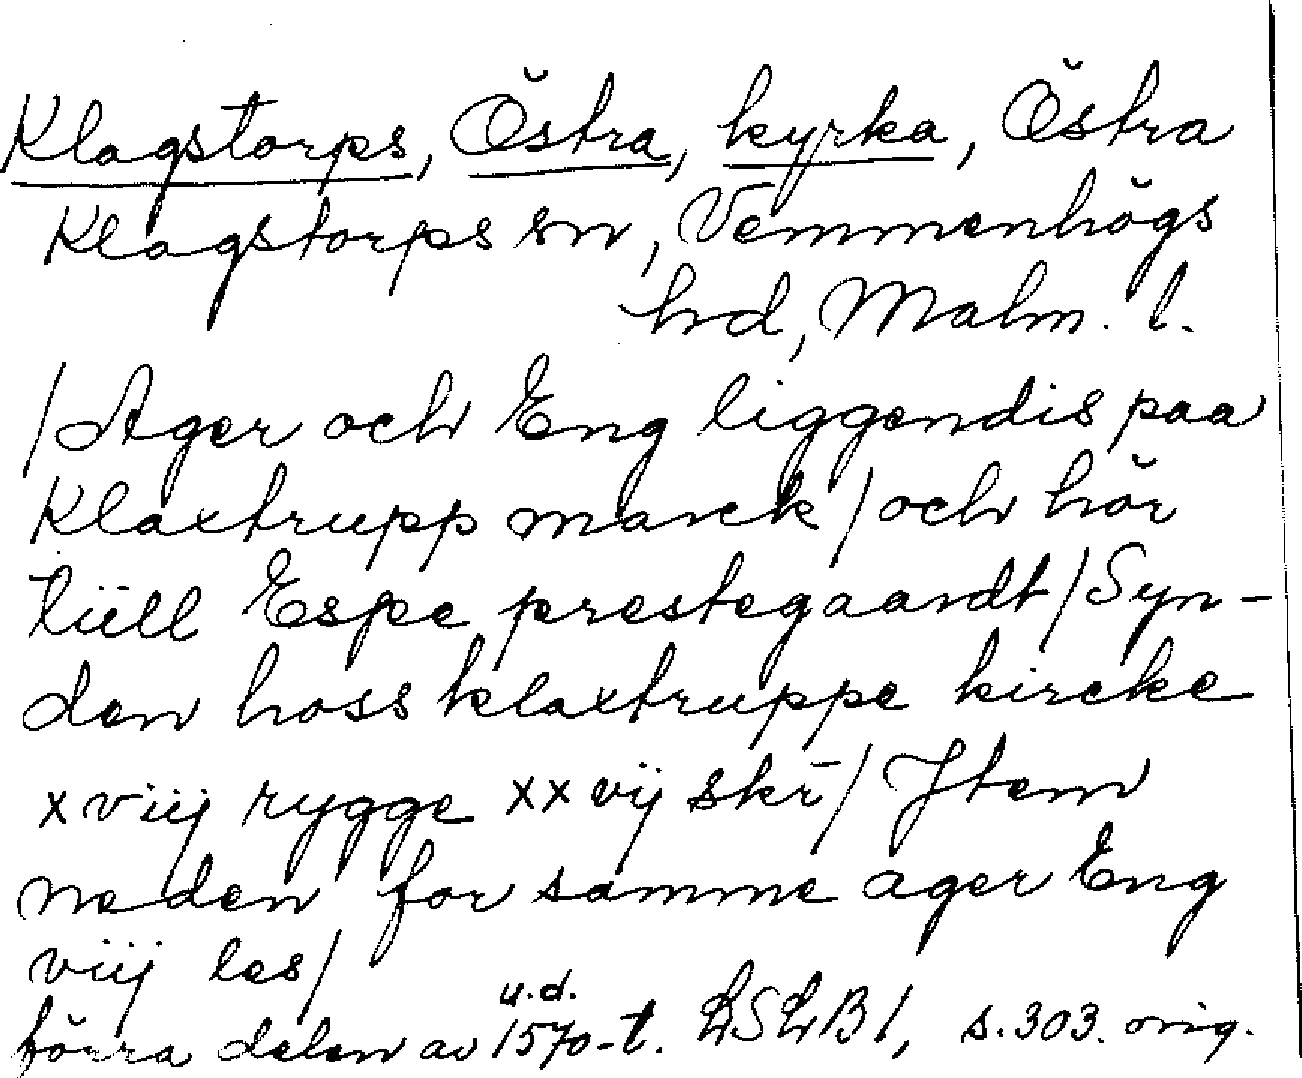 Klagstorps, Östra, kyrka, Östra
Klagstorps sn, Vemmenhögs
hrd, Malm. l.
/Ager och Eng liggendis paa
Klaxtrupp marck/och hör
tiill Espe prestegaardt/Syn-
den hoss klaxtruppe kircke
xviij rygge xxvij skr̄/Jtem
neden for samme ager Eng
viij les/
u.d.
förra delen av 1570-t. LSLB1, s. 303. orig.